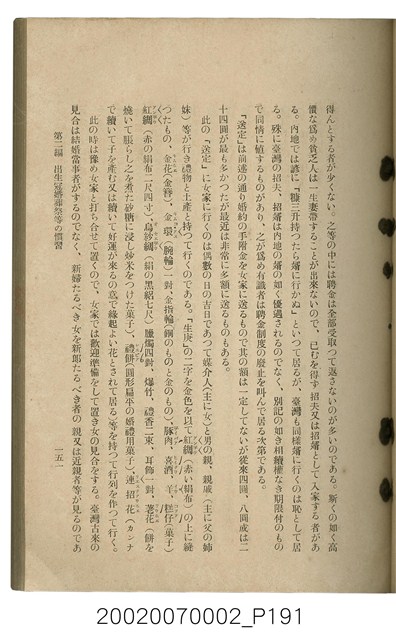 得んとする者が少くない。之等の中には聘金は全部受取つて返さないのが多いのである。斯くの如く高
價な爲め貧乏人は一生妻帶することが出來ないので、已むを得ず招夫又は招壻として入家する者があ
る。内地では諺に『糠三升持つたら壻に行かぬ』といつて居るが、臺灣も同樣壻に行くのは恥として居
る。殊に臺灣の招夫、招壻は内地の壻の如く優遇されるのでなく、別記の如き相續權なき期限付のもの
で同情に値するものがあり、之が爲め有識者は聘金制度の廢止を叫んで居る次第である。
『送定』は前述の通り婚約の手附金を女家に送るもので其の額は一定してないが從來四圓、八圓或は二
十四圓が最も多かつたが最近は非常に多額に送るものもある。
此の『送定』に女家に行くのは偶數の日の吉日であつて媒介人(主に女)と男の親、親戚(主に父の姉
妹)等が行き禮物と土產と持つて行くのである。『生庚』の二字を金色を以て紅綢(赤い絹布)の上に繞
つたもの、金花(金簪)、金環(腕輪)一對、金指輪(銅のものと金のもの)、豚肉、喜酒、羊、糕仔(菓子)
紅綢(赤の絹布二尺四寸)、烏紗綢(絹の黑紹七尺)、臘燭四對、爆竹、禮香二束、耳飾一對、荖花(餅を
燒いて賬らし之を煮た砂糖に浸し炒米をつけた菓子)、禮餅(圓形扁平の婚禮用菓子)、連招花(カンナ
で續いて子を產む又は續いて好運が來るの意で緣起よい花とされて居る)等を持つて行列を作つて行く。
此の時は豫め女家と打ち合せて置くので、女家では歡迎準備をして置き女の見合をする。臺灣古來の
見合は結婚當事者がするのでなく、新婦たるべき女を新郞たるべき者の親又は近親者等が見るのであ
第二編 出生冠婚葬祭等の慣習
一五一
20020070002_P191